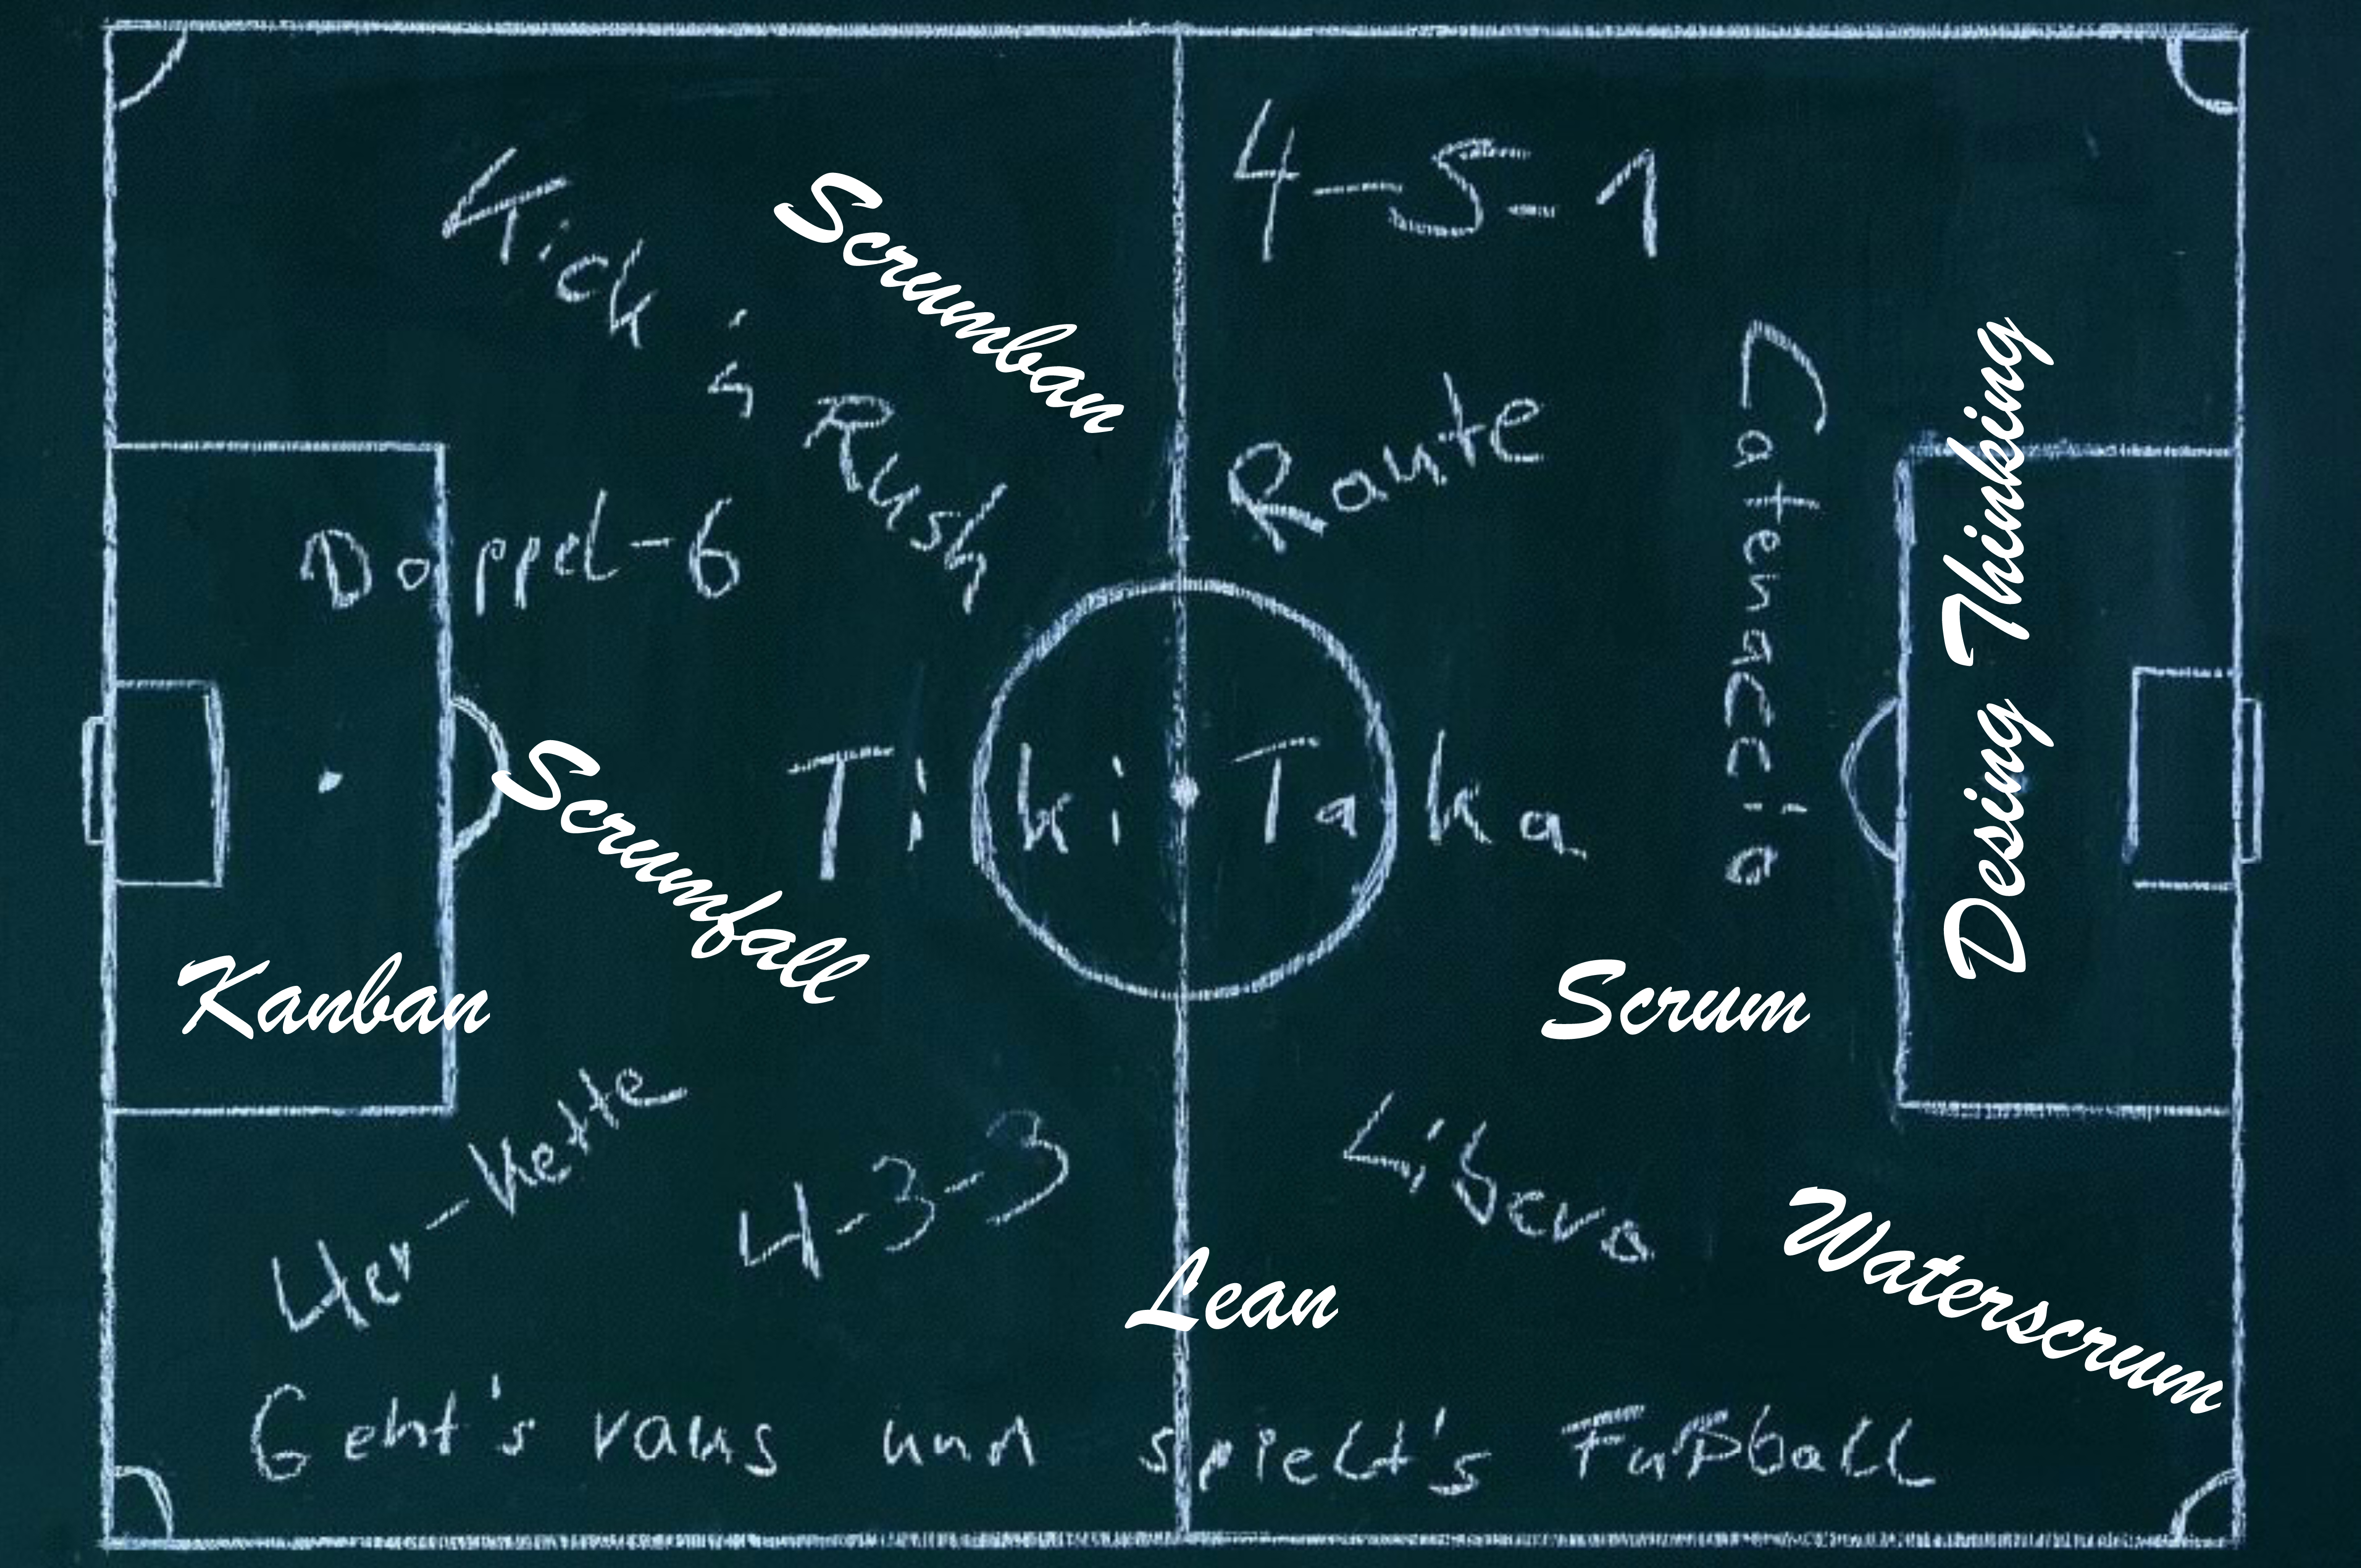 4-5-1
Kick 'n Rush
Scrumban
Raute
Catenaccio
Desing Thinking
Doppel-6
Tiki Taka
Scrumfall
Kanban
Scrum
4er-Kette
4-3-3
Libero
Waterscrum
Lean
Geht's raus und spielt's Fußball